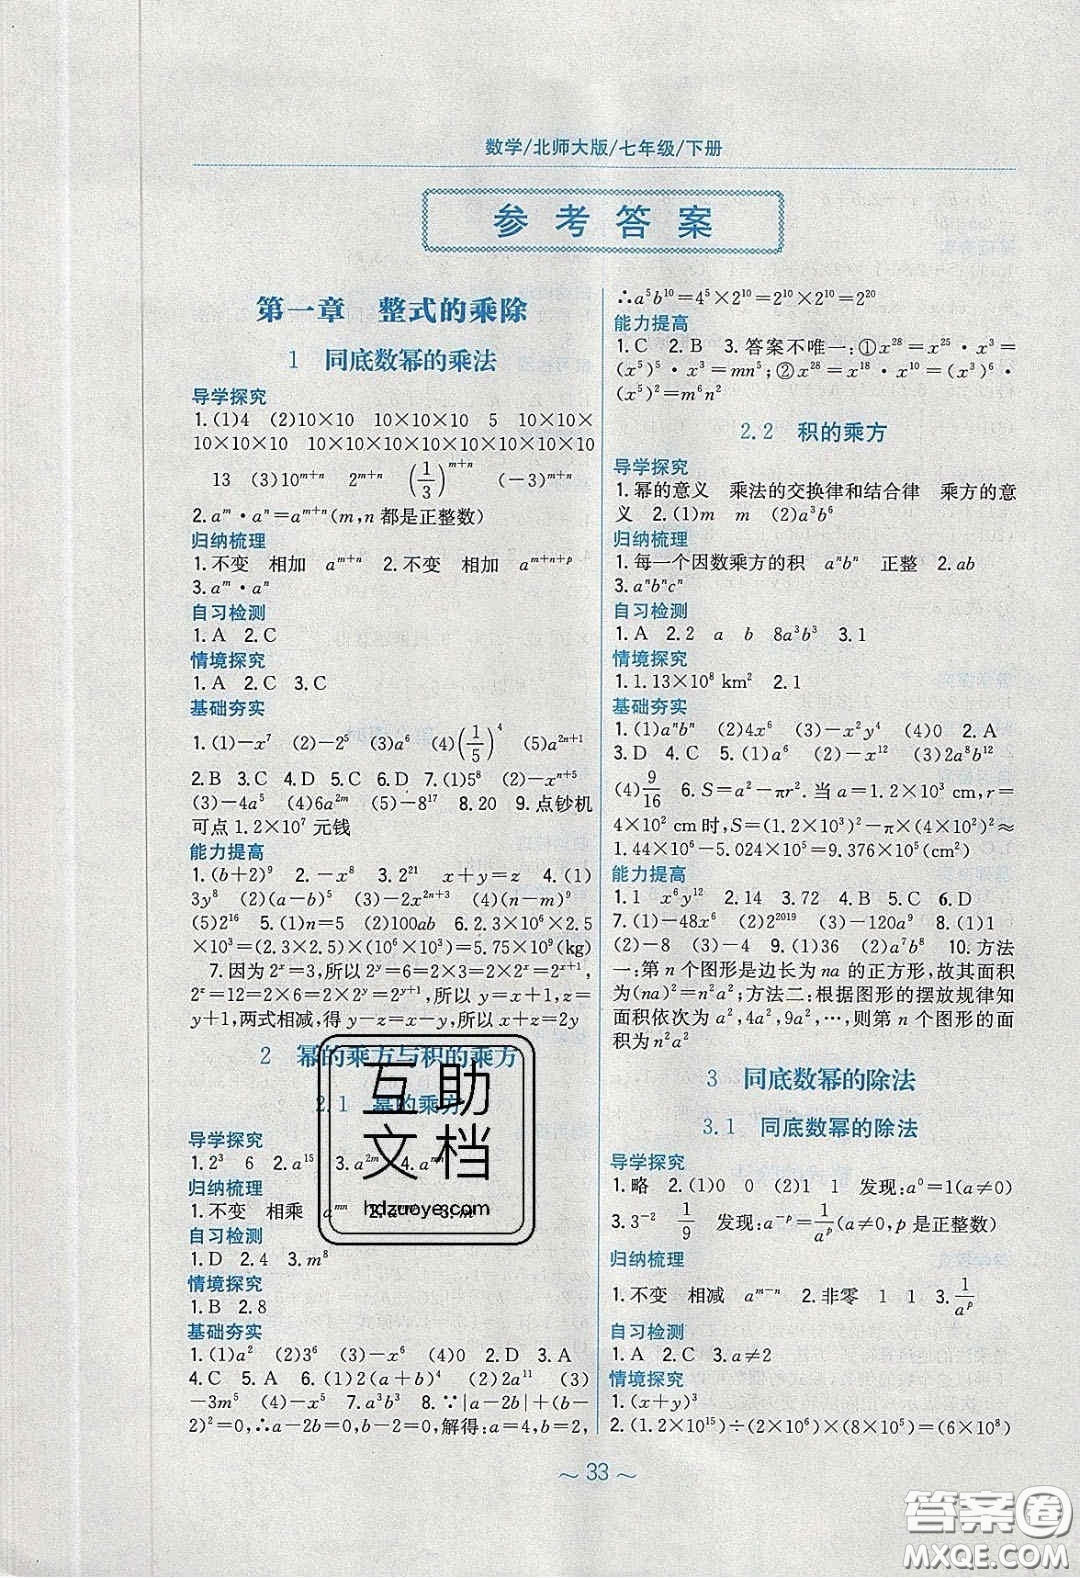 数学/北师大版/七年级/下册
参考答案
第一章　整式的乘除
1　同底数幂的乘法
导学探究
1.(1)4　(2)10×10　10×10×10　5　10×10×
10×10×10　10×10×10×10×10×10×10
13　(3)10^{m+n}　2^{m+n}　(1/3)^{m+n}　(-3)^{m+n}
2.a^m·a^n=a^{m+n}(m,n都是正整数)
归纳梳理
1.不变　相加　a^{m+n}　2.不变　相加　a^{m+n+p}
3.a^m·a^n
自习检测
1.A　2.C
情境探究
1.A　2.C　3.C
基础夯实
1.(1)-x^7　(2)-2^5　(3)a^6　(4)(1/5)^4　(5)a^{2n+1}
2.B　3.C　4.D　5.C　6.D　7.(1)5^8　(2)-x^{n+5}
(3)-4a^5　(4)6a^{2m}　(5)-8^{17}　8.20　9.点钞机
可点1.2×10^7元钱
能力提高
1.(b+2)^9　2.-x^8　3.2^{21}　x+y=z　4.(1)
3y^8　(2)(a-b)^6　(3)-2x^{2n+3}　(4)(n-m)^6
(5)2^{16}　5.(1)n=5　(2)100ab　6.2.3×10^6×2.5
×10^3=(2.3×2.5)×(10^6×10^3)=5.75×10^9(kg)
7.因为2^x=3,所以2^y=6=2×3=2×2^x=2^{x+1},
2^z=12=2×6=2×2^y=2^{y+1},所以y=x+1,z=
y+1,两式相减,得y-z=x-y,所以x+z=2y
2　幂的乘方与积的乘方
2.1　幂的乘方
导学探究
1.2^3　6　2.a^{15}　3.a^{2m}　4.a^{mn}
归纳梳理
1.不变　相乘　a^{mn}　2.a^{mn}　3.m
自习检测
1.D　2.4　3.m^8
情境探究
1.B　2.8
基础夯实
1.(1)a^2　(2)3^6　(3)-x^6　(4)0　2.D　3.A
4.C　5.A　6.(1)2(a+b)^4　(2)2a^{11}　(3)
-3m^5　(4)-x^5　7.a^3b^3　8.∵|a-2b|+(b-
2)^2=0,∴a-2b=0,b-2=0,解得:a=4,b=2,
∴a^5b^{10}=4^5×2^{10}=2^{10}×2^{10}=2^{20}
能力提高
1.C　2.B　3.答案不唯一:①x^{28}=x^{25}·x^3=
(x^5)^5·x^3=mn^5;②x^{28}=x^{18}·x^{10}=(x^3)^6·
(x^5)^2=m^6n^2
2.2　积的乘方
导学探究
1.幂的意义　乘法的交换律和结合律　乘方的意
义　2.(1)m　m　(2)a^3b^6
归纳梳理
1.每一个因数乘方的积　a^nb^n　正整　2.ab
3.a^nb^nc^n
自习检测
1.A　2.2　a　b　8a^3b^3　3.1
情境探究
1.1.13×10^8 km^2　2.1
基础夯实
1.(1)a^nb^n　(2)4x^6　(3)-x^2y^4　(4)0　2.A
3.D　4.C　5.(1)a^6　(2)-x^{12}　(3)2a^8b^{12}
(4)9/16　6.S=a^2-πr^2.当a=1.2×10^3 cm,r=
4×10^2 cm时,S=(1.2×10^3)^2-π×(4×10^2)^2≈
1.44×10^6-5.024×10^5=9.376×10^5(cm^2)
能力提高
1.1　x^6y^{12}　2.14　3.72　4.B　5.C　6.D
7.(1)-48x^6　(2)2^{2019}　(3)-120a^9　8.(1)1
(2)-8　(3)-4　9.(1)36　(2)a^7b^8　10.方法
一:第n个图形是边长为na的正方形,故其面积
为(na)^2=n^2a^2;方法二:根据图形的摆放规律知
面积依次为a^2,4a^2,9a^2,…,则第n个图形的面
积为n^2a^2
3　同底数幂的除法
3.1　同底数幂的除法
导学探究
1.略　2.(1)0　0　(2)1　1　发现:a^0=1(a≠0)
3.3^{-2}　1/9　发现:a^{-p}=1/a^p(a≠0,p是正整数)
归纳梳理
1.不变　相减　a^{m-n}　2.非零　1　1　3.1/a^p
自习检测
1.A　2.C　3.a≠2
情境探究
1.(x+y)^3
2.(1.2×10^{15})÷(2×10^6)×(8×10^5)=(6×10^8)
~33~
互助
文档
hdzuoye.com
答案圈
MXQE.COM